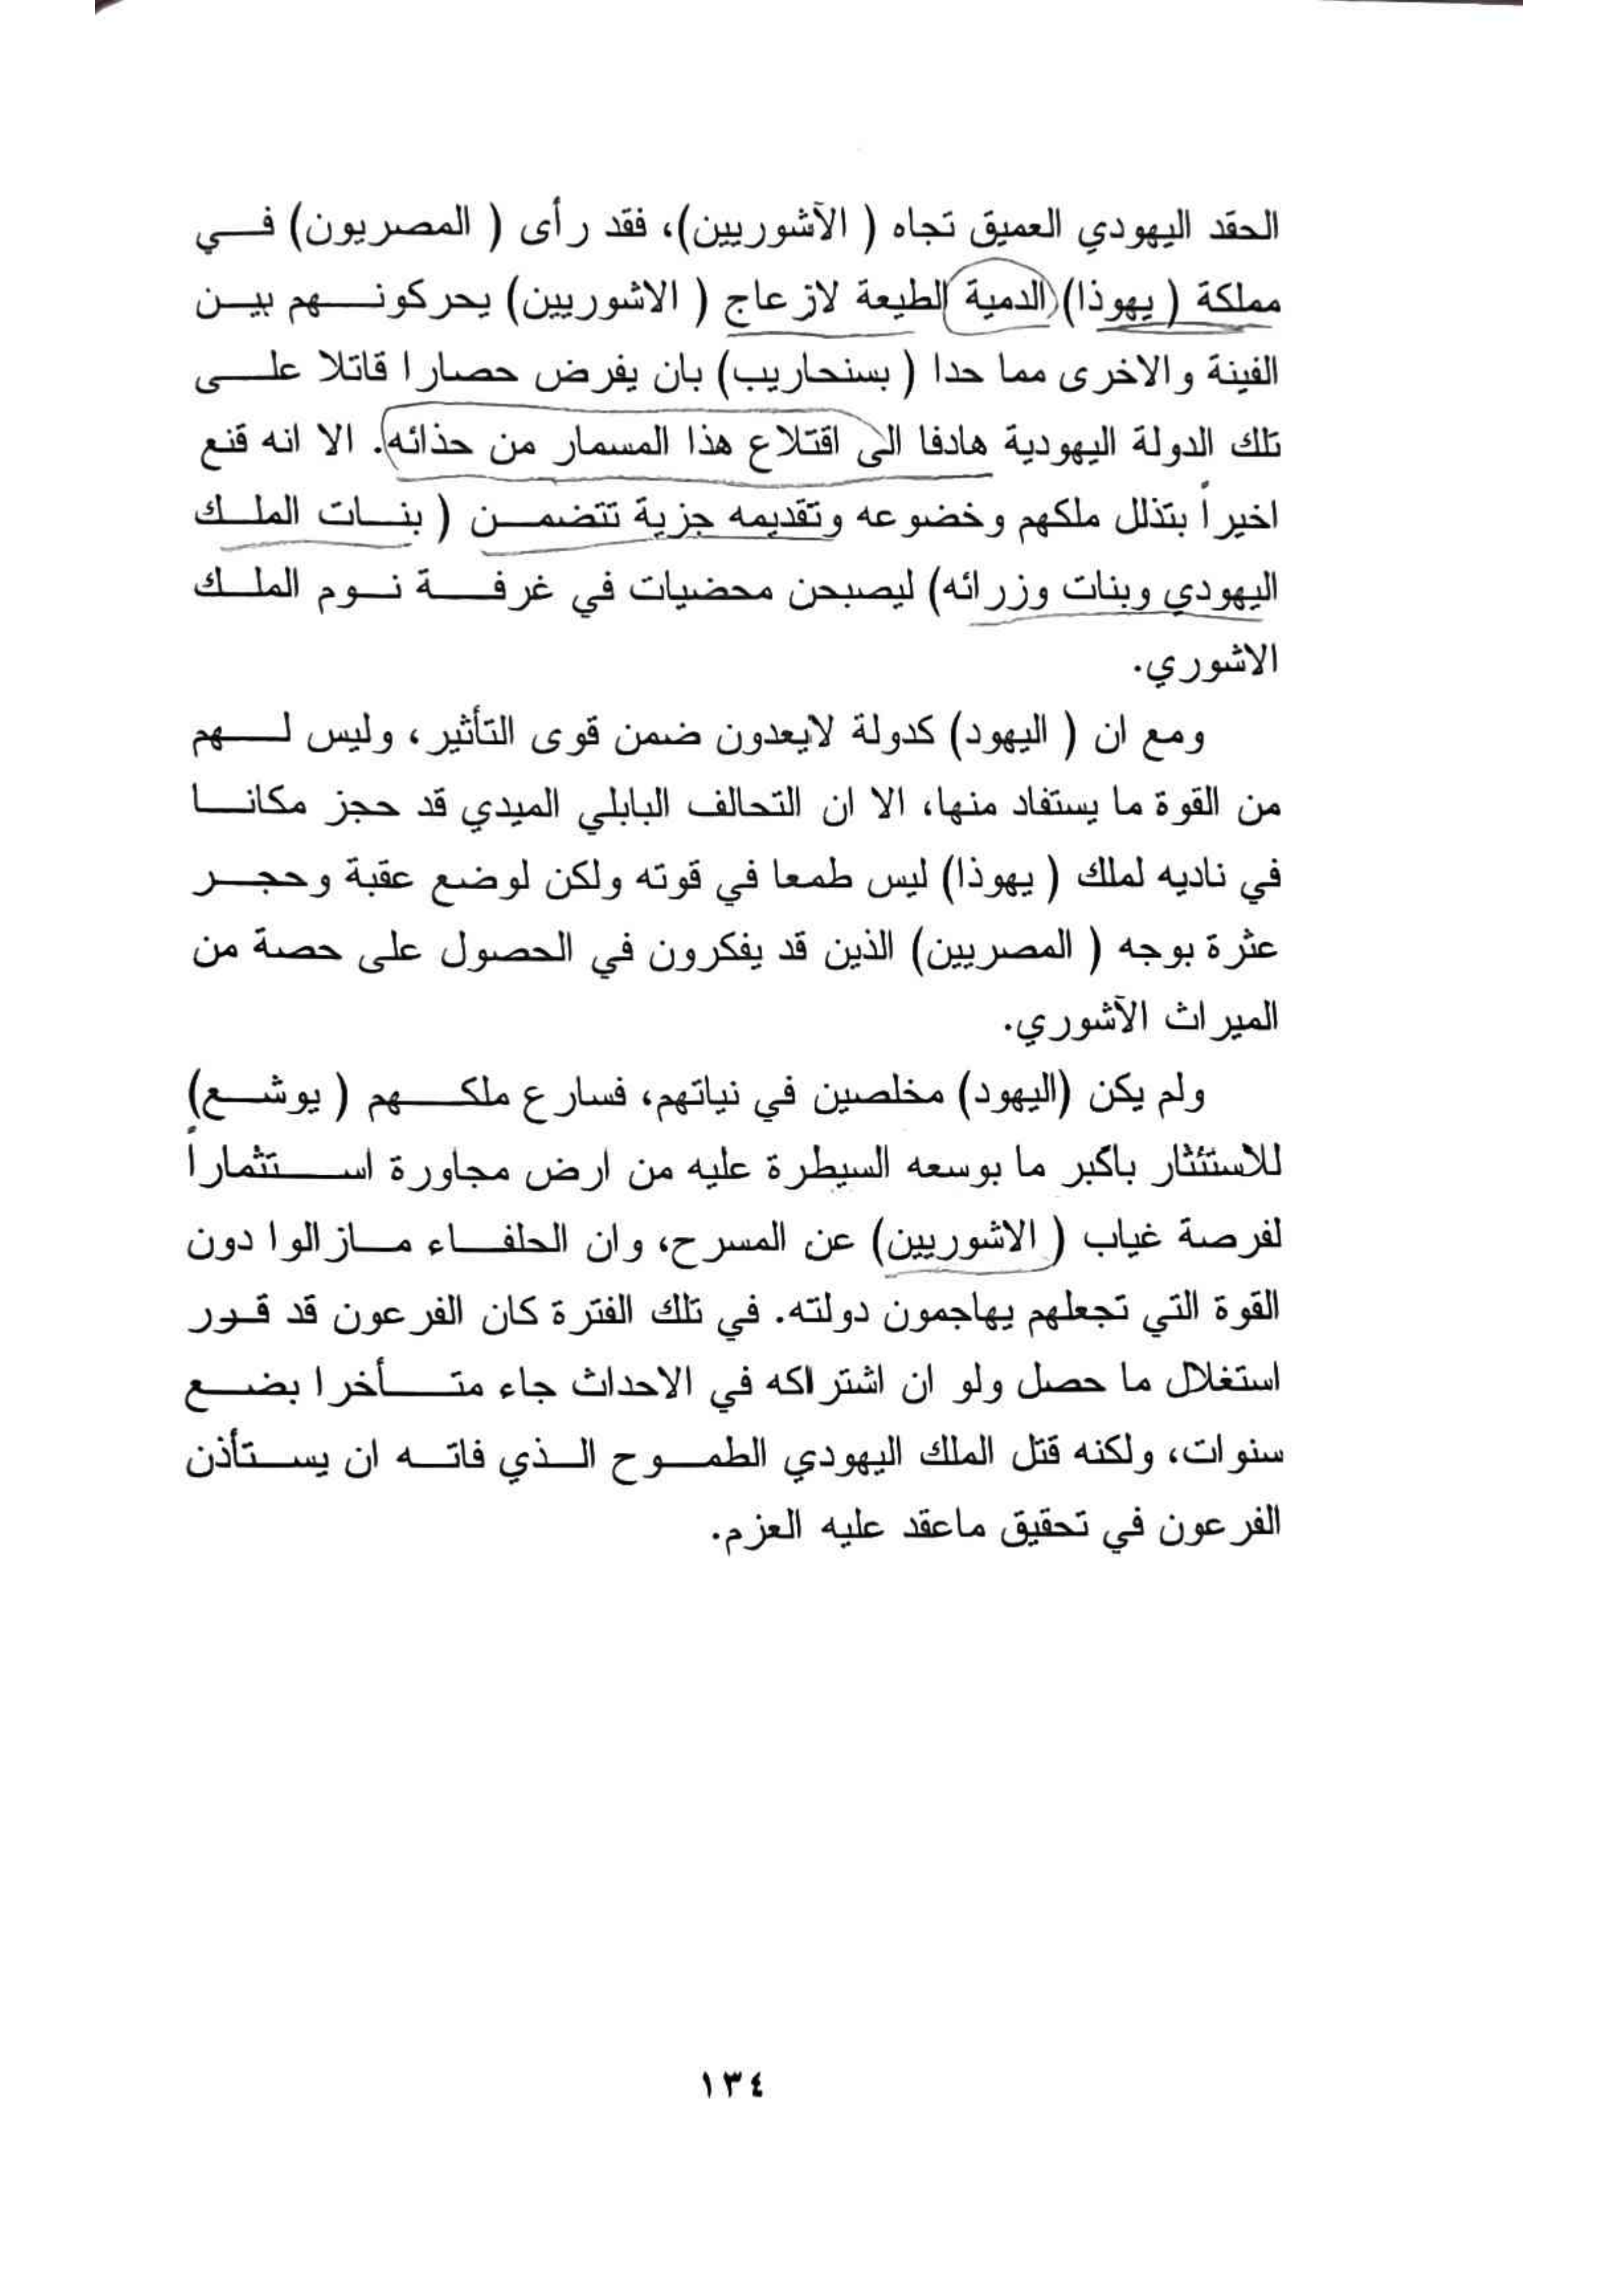 الحقد اليهودي العميق تجاه ( الآشوريين)، فقد رأى ( المصريون) في
مملكة ( يهوذا) الدمية الطيعة لازعاج ( الاشوريين) يحركونهم بين
الفينة والاخرى مما حدا ( بسنحاريب) بان يفرض حصارا قاتلا على
تلك الدولة اليهودية هادفا الى اقتلاع هذا المسمار من حذائه. الا انه قنع
اخيراً بتذلل ملكهم وخضوعه وتقديمه جزية تتضمن ( بنات الملك
اليهودي وبنات وزرائه) ليصبحن محضيات في غرفة نوم الملك
الاشوري.
ومع ان ( اليهود) كدولة لايعدون ضمن قوى التأثير، وليس لهم
من القوة ما يستفاد منها، الا ان التحالف البابلي الميدي قد حجز مكانا
في ناديه لملك ( يهوذا) ليس طمعا في قوته ولكن لوضع عقبة وحجر
عثرة بوجه ( المصريين) الذين قد يفكرون في الحصول على حصة من
الميراث الآشوري.
ولم يكن (اليهود) مخلصين في نياتهم، فسارع ملكهم ( يوشع)
للاستئثار باكبر ما بوسعه السيطرة عليه من ارض مجاورة استثماراً
لفرصة غياب ( الاشوريين) عن المسرح، وان الحلفاء مازالوا دون
القوة التي تجعلهم يهاجمون دولته. في تلك الفترة كان الفرعون قد قرر
استغلال ما حصل ولو ان اشتراكه في الاحداث جاء متأخرا بضع
سنوات، ولكنه قتل الملك اليهودي الطموح الذي فاته ان يستأذن
الفرعون في تحقيق ماعقد عليه العزم.
١٣٤